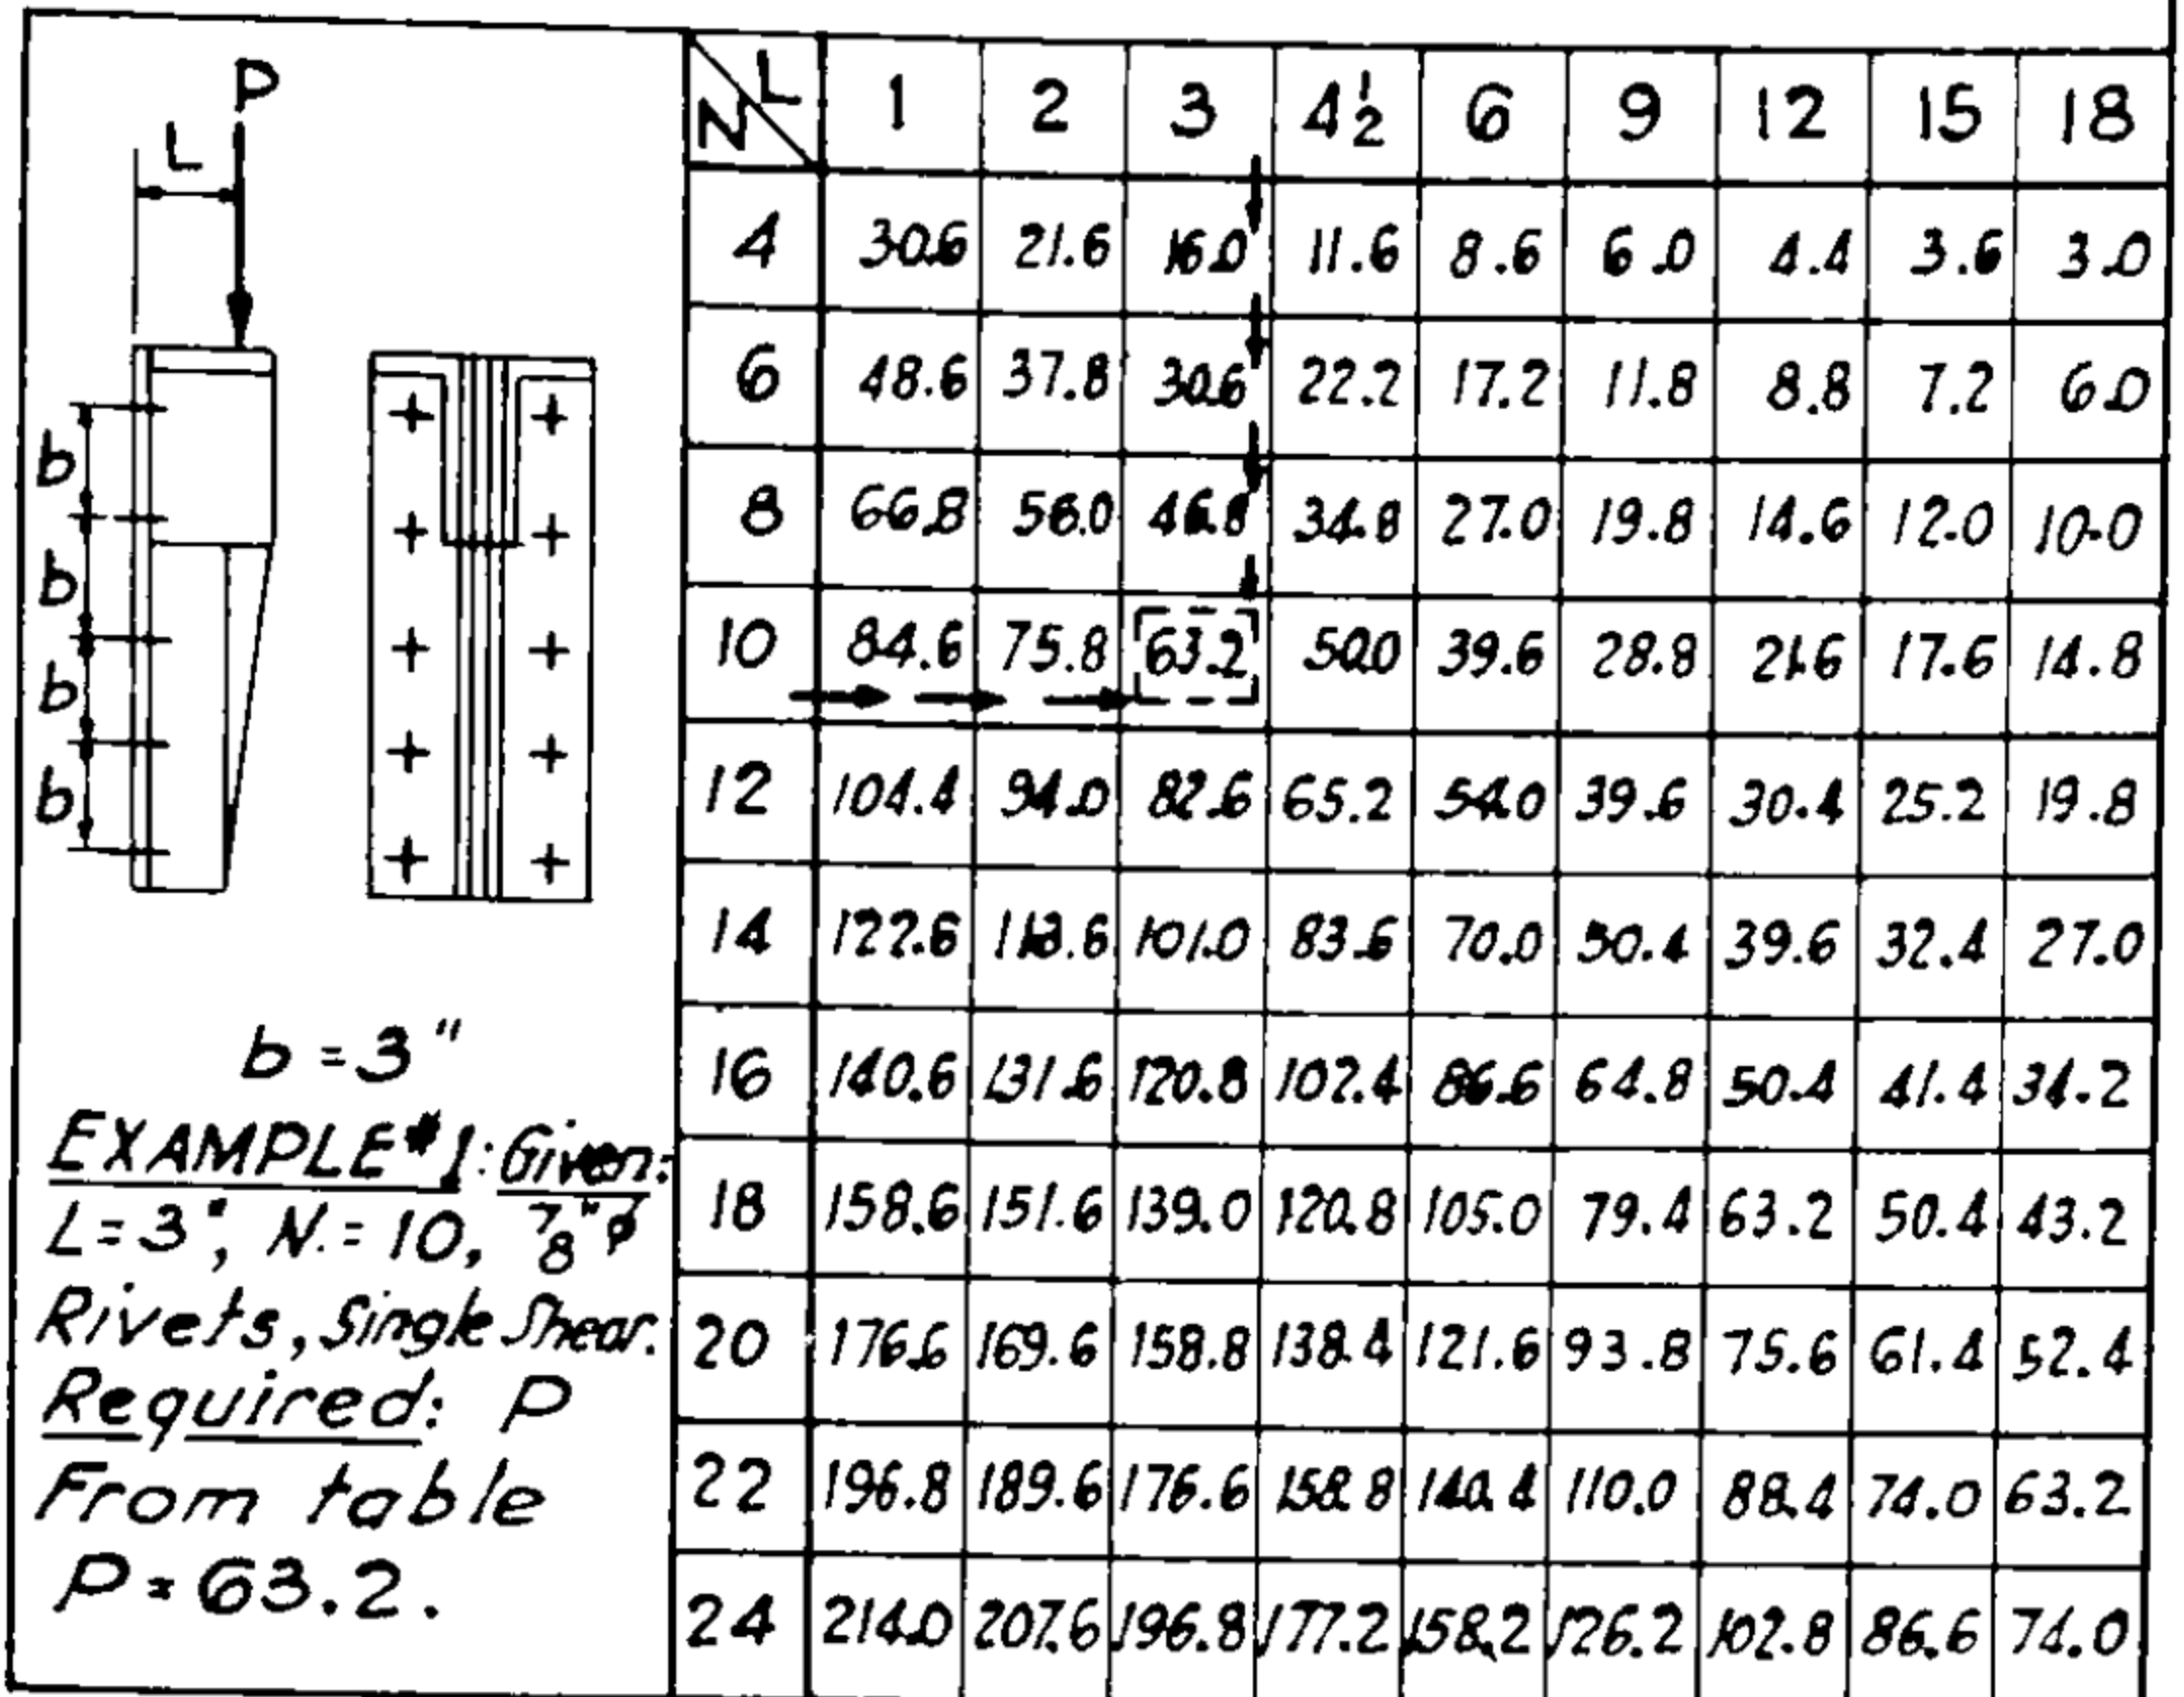 P
L
b
b
b
b
b = 3"
EXAMPLE #1: Given:
L = 3", N. = 10, 7/8"ϕ
Rivets, Single Shear.
Required: P
From table
P = 63.2.
N L 1 2 3 4 1/2 6 9 12 15 18
4 30.6 21.6 16.0 11.6 8.6 6.0 4.4 3.6 3.0
6 48.6 37.8 30.6 22.2 17.2 11.8 8.8 7.2 6.0
8 66.8 46.8 34.8 27.0 19.8 14.6 12.0 10.0
10 84.6 75.8 63.2 50.0 39.6 28.8 21.6 17.6 14.8
12 104.4 94.0 82.6 65.2 54.0 39.6 30.4 25.2 19.8
14 122.6 101.0 83.6 70.0 50.4 39.6 32.4 27.0
16 140.6 131.6 120.8 102.4 86.6 64.8 50.4 41.4 34.2
18 158.6 151.6 139.0 120.8 105.0 79.4 63.2 50.4 43.2
20 176.6 169.6 158.8 138.4 121.6 93.8 75.6 61.4 52.4
22 196.8 189.6 176.6 158.8 140.4 110.0 88.4 74.0 63.2
24 214.0 207.6 196.8 177.2 158.2 126.2 102.8 86.6 74.0